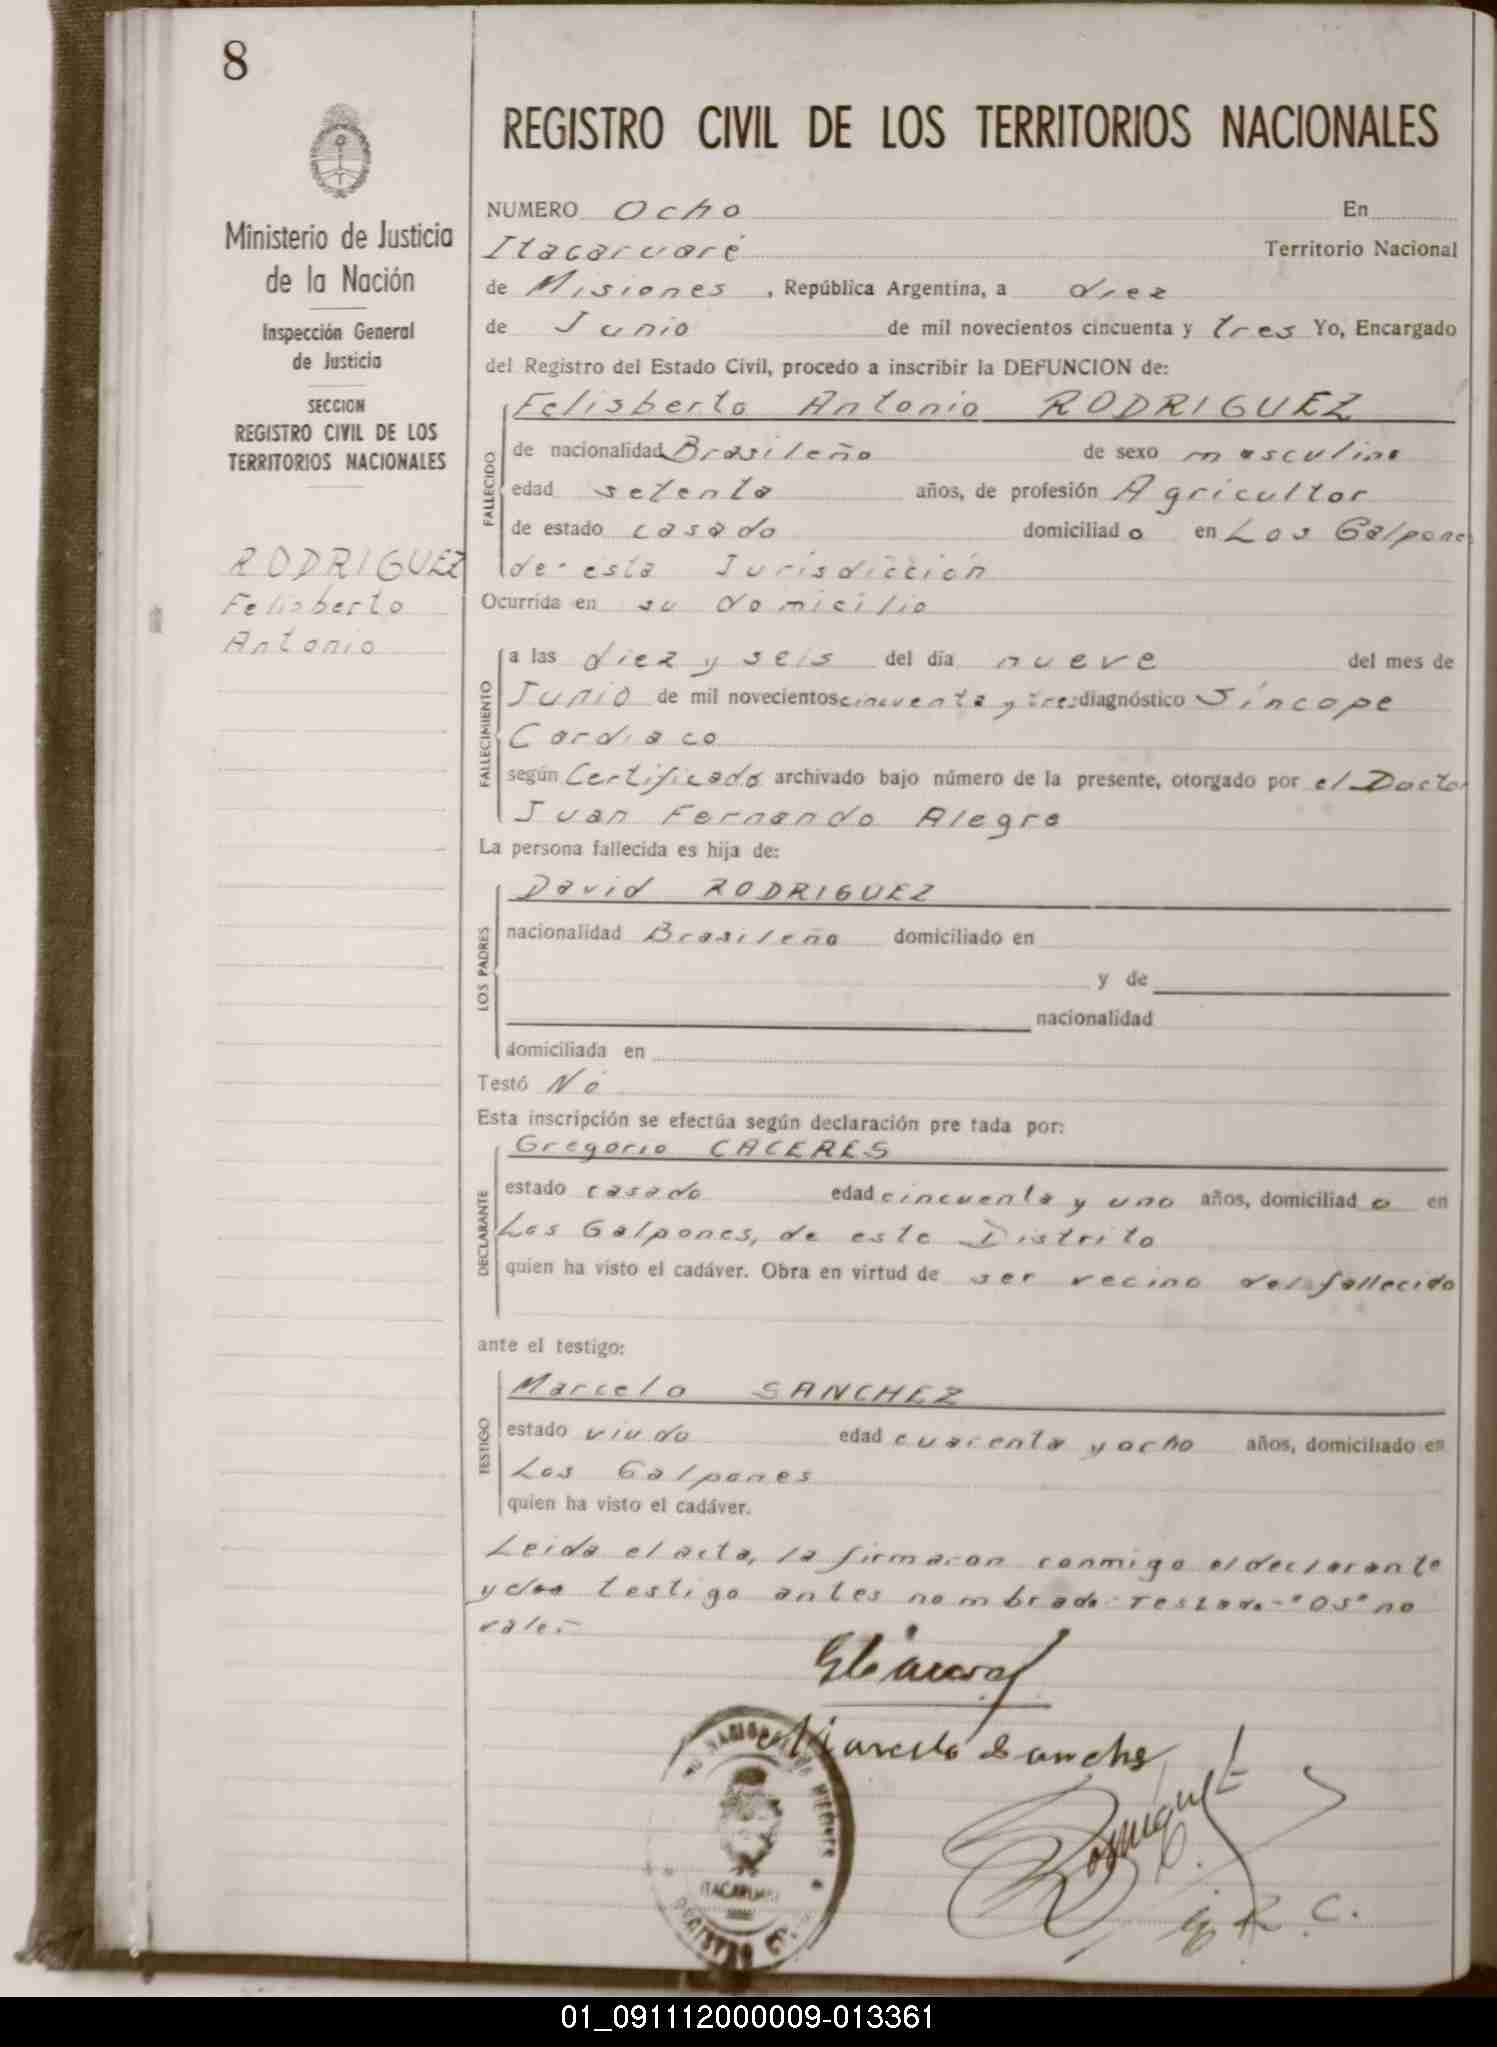 8
Ministerio de Justicia
de la Nación
Inspección General
de Justicia
SECCION
REGISTRO CIVIL DE LOS
TERRITORIOS NACIONALES
RODRIGUEZ
Felisberto
Antonio
REGISTRO CIVIL DE LOS TERRITORIOS NACIONALES
NUMERO Ocho En
Itacaruaré Territorio Nacional
de Misiones , República Argentina, a diez
de Junio de mil novecientos cincuenta y tres Yo, Encargado
del Registro del Estado Civil, procedo a inscribir la DEFUNCION de:
Felisberto Antonio RODRIGUEZ
FALLECIDO
de nacionalidad Brasileño de sexo masculino
edad setenta años, de profesión Agricultor
de estado casado domiciliado en Los Galpones
de esta Jurisdicción
Ocurrida en su domicilio
FALLECIMIENTO
a las diez y seis del día nueve del mes de
Junio de mil novecientos cincuenta y tres diagnóstico Síncope
Cardiaco
según Certificado archivado bajo número de la presente, otorgado por el Doctor
Juan Fernando Alegre
La persona fallecida es hija de:
LOS PADRES
David RODRIGUEZ
nacionalidad Brasileña domiciliado en
y de
nacionalidad
domiciliada en
Testó No
Esta inscripción se efectúa según declaración pre tada por:
DECLARANTE
Gregorio CACERES
estado casado edad cincuenta y uno años, domiciliado en
Los Galpones, de este Distrito
quien ha visto el cadáver. Obra en virtud de ser vecino del fallecido
ante el testigo:
TESTIGO
Marcelo SANCHEZ
estado viudo edad cuarenta y ocho años, domiciliado en
Los Galpones
quien ha visto el cadáver.
Leida el acta, la firmaron conmigo el declarante
y testigo antes nombrado. Testado-"os" no
vale.-
Marcelo Sanchez
ITACARUARE
REGISTRO
E.R.C.
01_091112000009-013361